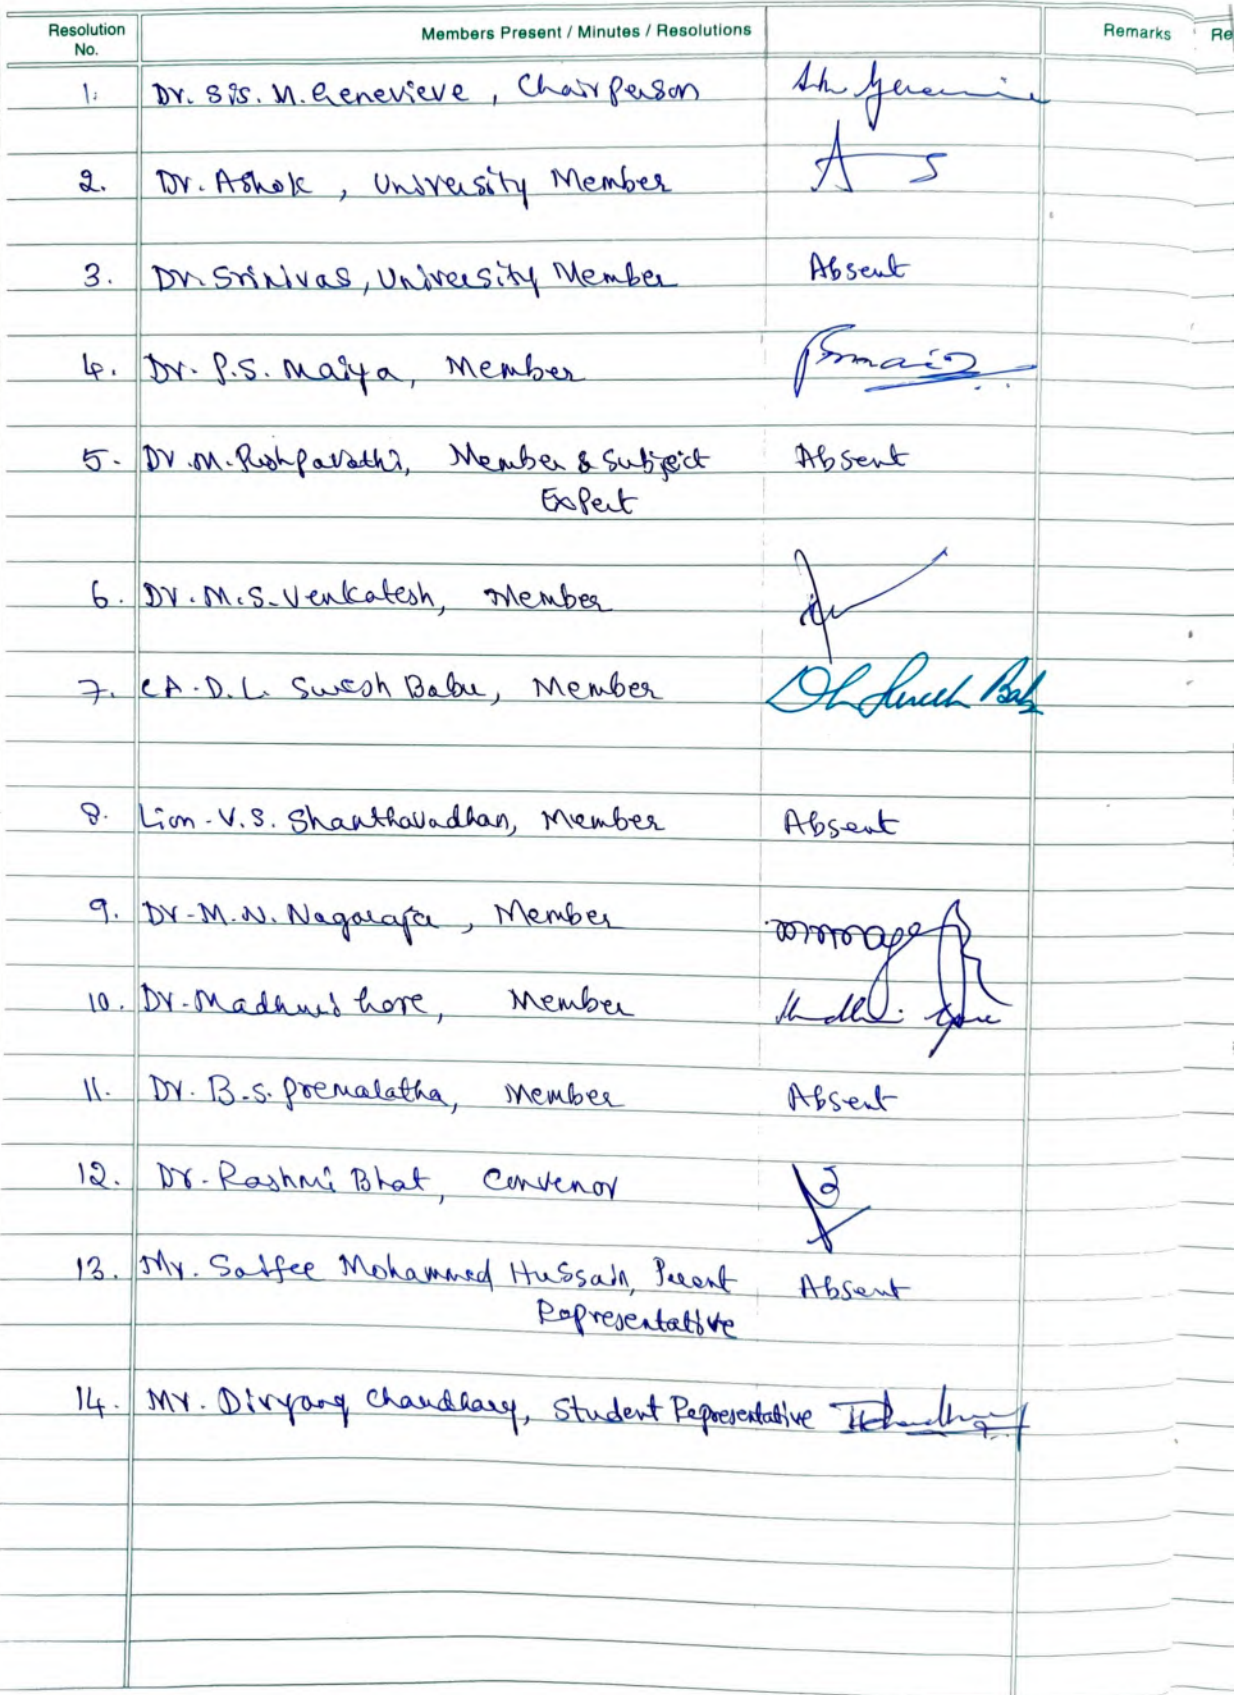 Resolution No. Members Present / Minutes / Resolutions Remarks Re
1. Dr. Sis. M. Genevieve, Chairperson
2. Dr. Ashok, University Member
3. Dr. Srinivas, University Member Absent
4. Dr. P.S. Maiya, Member
5. Dr. M. Pushpavathi, Member & Subject Absent
Expert
6. Dr. M.S. Venkatesh, Member
7. CA. D.L. Suresh Babu, Member DL Suresh Bab
8. Lion. V.S. Shanthavadhan, Member Absent
9. Dr. M.N. Nagaraja, Member
10. Dr. Madhuri hore, Member
11. Dr. B.S. Premalatha, Member Absent
12. Dr. Rashmi Bhat, Convenor
13. Mr. Saifee Mohammed Hussain, Parent Absent
Representative
14. Mr. Divyang Chaudhary, Student Representative